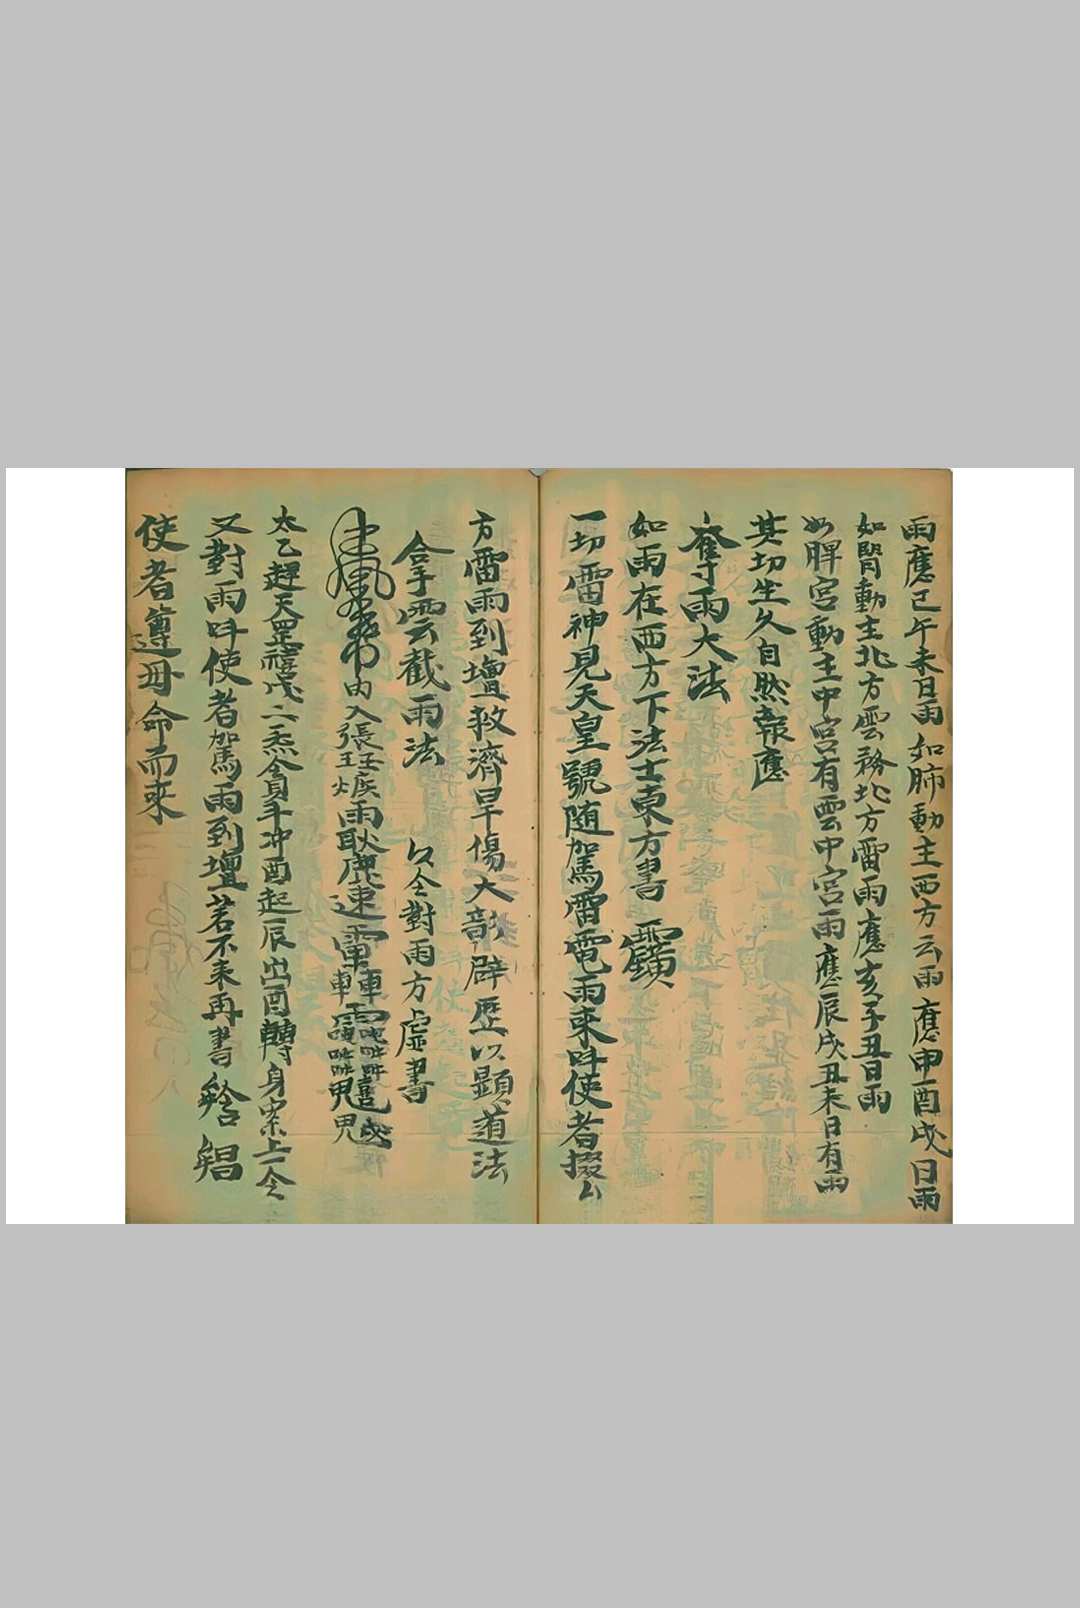 雨應巳午未日雨如肺動主西方云雨應申酉戌日雨
如腎動主北方雲務北方雷雨應亥子丑日雨
如脾宮動主中宮有雲中宮雨應辰戌丑未日有雨
其切生久自然報應
奪雨大法
如雨在西方下法士東方書
一切雷神見天皇號随駕雷電雨来吽使者掇厶
方雷雨到壇救濟旱傷大彰辟歷以顯道法
合手雲截雨法 以仝對雨方虛書
内入張珏 雨耿鹿速雷車 戌
太乙趕天罡禧戊二炁貪斗冲酉起辰出酉轉身 上一仝
又對雨吽使者駕雨到壇若不来再書
使者遵毋命而来